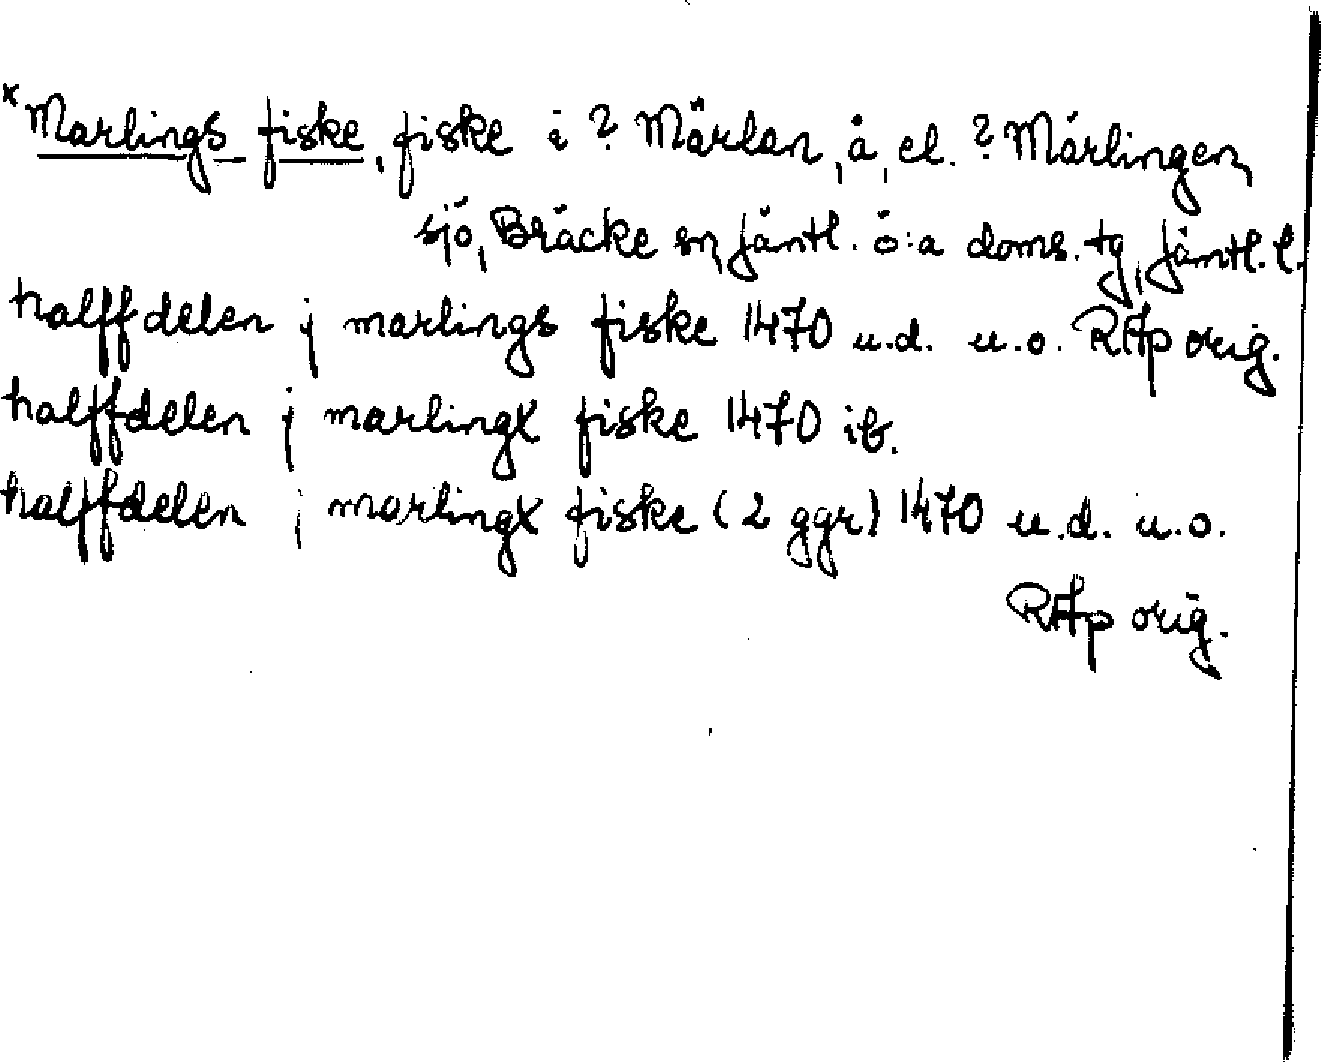 *Marlings fiske, fiske i ? Märlan, å, el. ? Märlingen,
sjö, Bräcke sn, Jämtl. ö:a doms. tg, Jämtl. l.
halffdelen j marlings fiske 1470 u.d. u.o. RAp orig.
halffdelen j marlingx fiske 1470 ib.
halffdelen j marlingx fiske (2 ggr) 1470 u.d. u.o.
RAp orig.